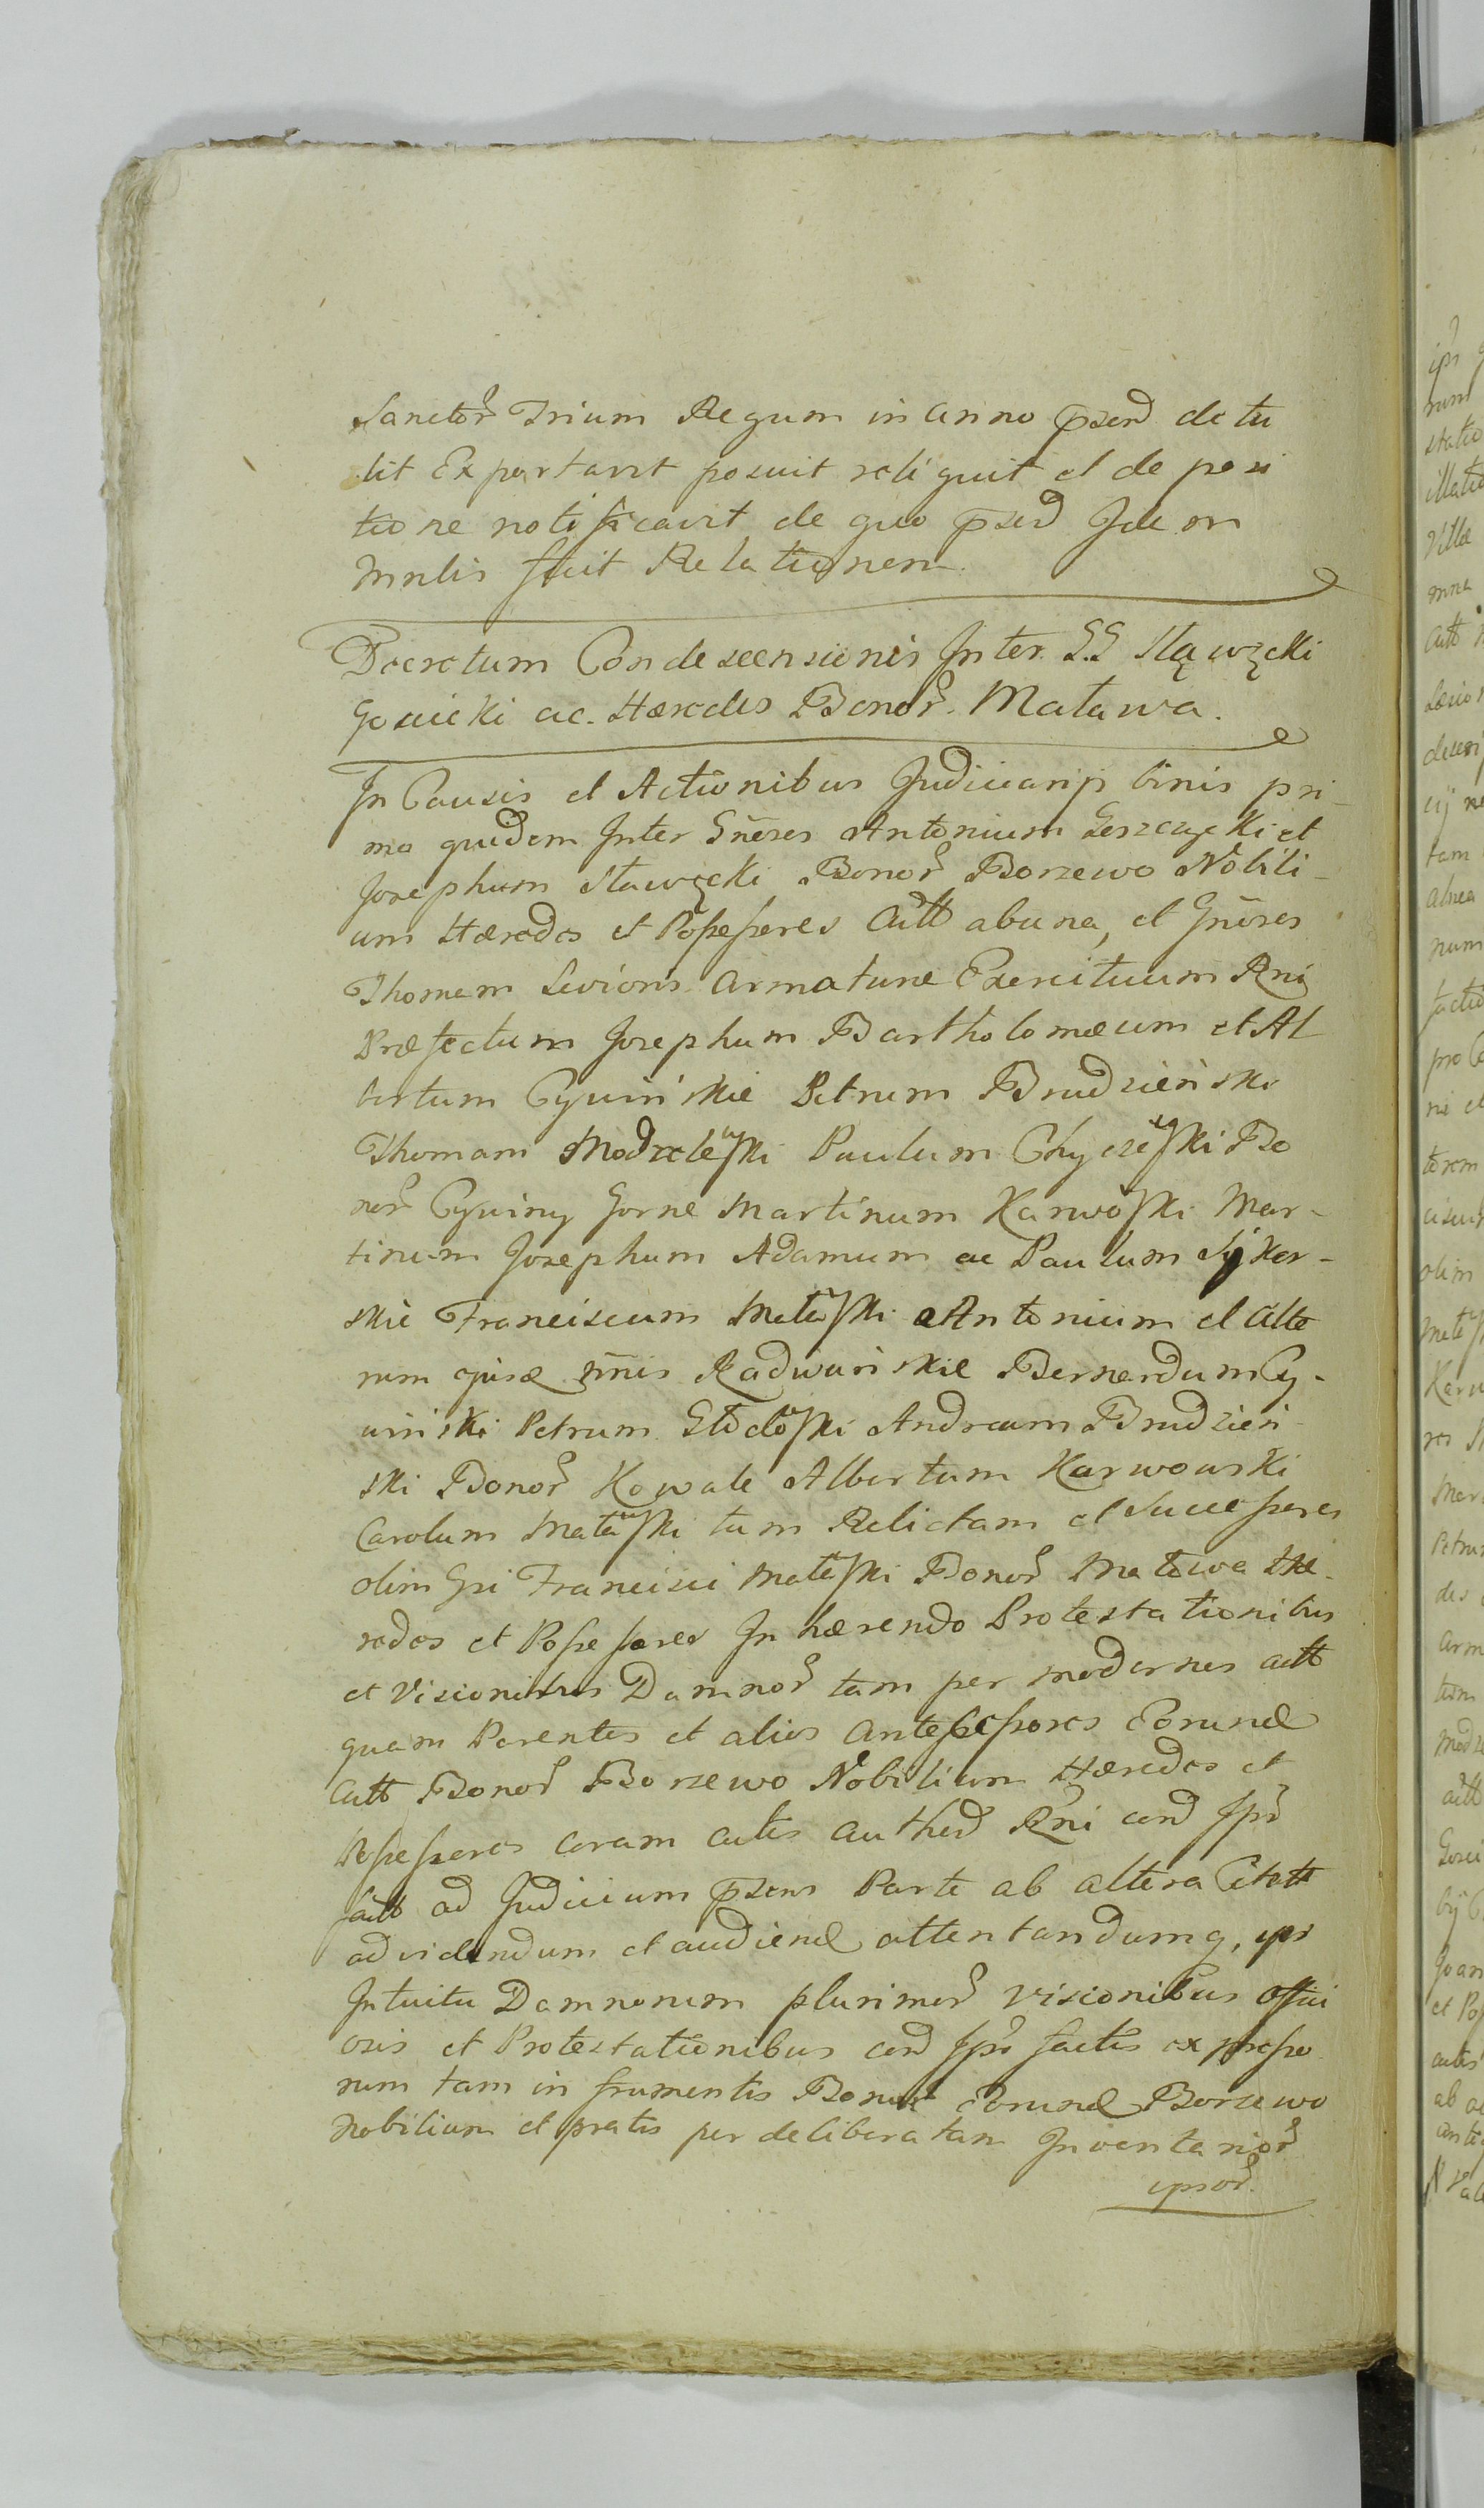 Sanctor Trium Regum in anno pszend detu
lit Exportavit posuit reliquit et de posi
tione notificavit de quo pszed Idem
mnlis fecit Relationem.
Decretum Condescensionis Inter G.G Sławęcki
Gosicki ac. Hæredes Bonor. Matawa.
In Causis et Actionibus Judiciarijs binis pri-
mo quidem Inter Gñeres Antonium Leszczycki et
Josephum Sławęcki Bonor Borzewo Nobili-
um Hæredes et Possessores Actt ab una, et Gñeres
Thomam Levioris armaturæ Exercituum Rni
Præfectum Josephum Bartholomæum et Al
bertum Cywińskie Petrum Brudzieński
Thomam Modzeleski Paulum Chyczeski Bo
nor Cywiny Gorne Martinum Karwoski Mar-
tinum Josephum Adamum ac Paulum Syker-
skie Franciscum Mataski Antonium et alte
rum ejusd nnis Radwańskie Bernardum Cy-
wiński Petrum Andream Brudzień
ski Bonor Kowale Albertum Karwowski
Carolum Mataski tum Relictam et Successores
olim Gsi Francisci Mataski Bonor Matawa Hæ-
redes et Possessores Inhærendo Protestationibus
et Visionibus Damnor tam per modernos actt
quam Parentes et alios antecessores Eorund
Actt Bonor Borzewo Nobilium Hæredes et
Possessores coram actis authed Rni cend Ipsor
factt ad Judicium pszens Parte ab altera Citatt
ad videndum et audiend attentandumq, ipsi
Intuitu Damnorum plurimor visionibus offici
osis et Protestationibus cend Ipsor factis expresso
rum tam in frumentis Bonor Eorund Borzewo
Nobilium et pratis per deliberatam Inventarior
ipsor.